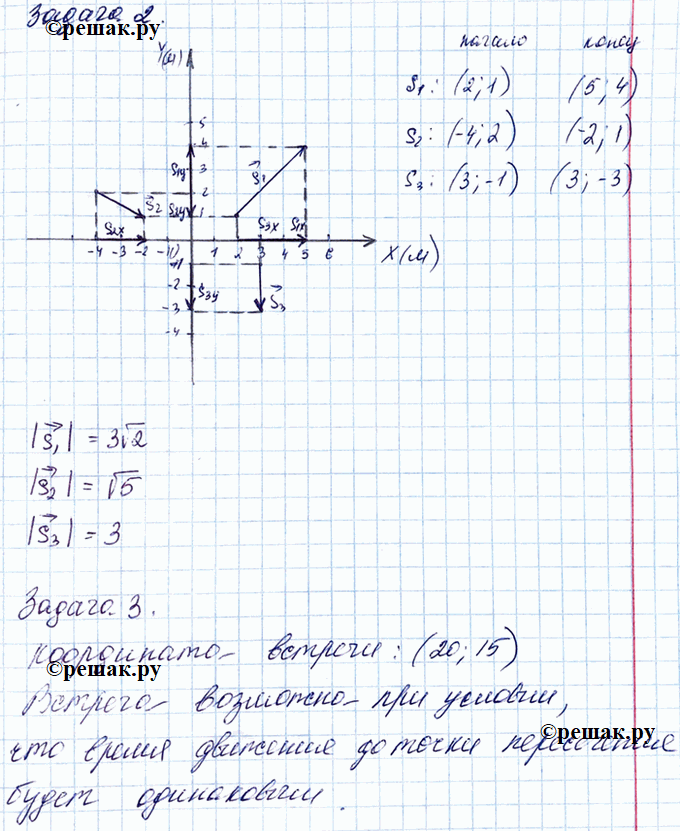 Задача 2.
©решак.ру
начало конец
S₁: (2; 1) (5; 4)
S₂: (-4; 2) (-2; 1)
S₃: (3; -1) (3; -3)
Y(м)
5
4
3
2
1
S₁y
S₂y
S₁
S₂
S₂x
S₃x
S₁x
-4 -3 -2 -1 0 1 2 3 4 5 6
X(м)
-1
-2
-3
-4
S₃y
S₃
|S₁| = 3√2
|S₂| = √5
|S₃| = 3
Задача 3.
Координата встречи: (20; 15)
©решак.ру
Встреча возможна при условии,
©решак.ру
что время движения до точки пересечения
будет одинаковым.